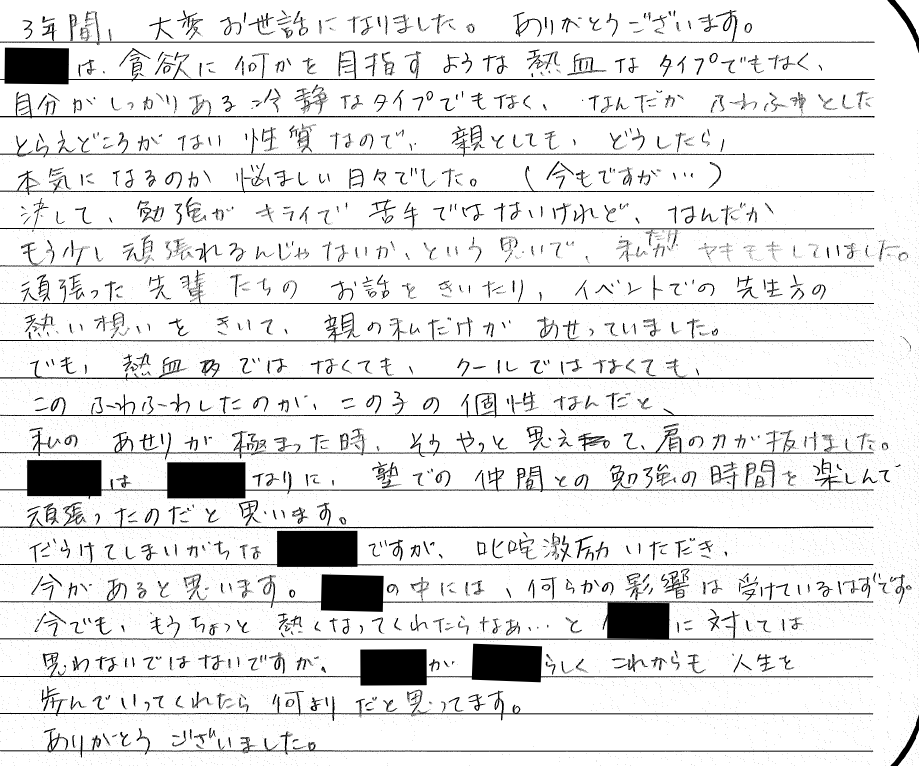 3年間、大変お世話になりました。ありがとうございます。
は、貪欲に何かを目指すような熱血なタイプでもなく、
自分がしっかりある冷静なタイプでもなく、なんだかふわふわとした
とらえどころがない性質なので、親としても、どうしたら、
本気になるのか悩ましい日々でした。(今もですが…)
決して、勉強がキライで苦手ではないけれど、なんだか
もう少し頑張れるんじゃないか、という思いで、私だけがヤキモキしていました。
頑張った先輩たちのお話をきいたり、イベントでの先生方の
熱い想いをきいて、親の私だけがあせっていました。
でも、熱血ではなくても、クールではなくても、
このふわふわしたのが、この子の個性なんだと、
私のあせりが極まった時、そうやっと思えて、肩の力が抜けました。
は なりに、塾での仲間との勉強の時間を楽しんで
頑張ったのだと思います。
だらけてしまいがちな ですが、叱咤激励いただき、
今があると思います。 の中には、何らかの影響は受けているはずです。
今でも、もうちょっと熱くなってくれたらなぁ…と に対しては
思わないではないですが、 が らしくこれからも人生を
歩んでいってくれたら何よりだと思ってます。
ありがとうございました。